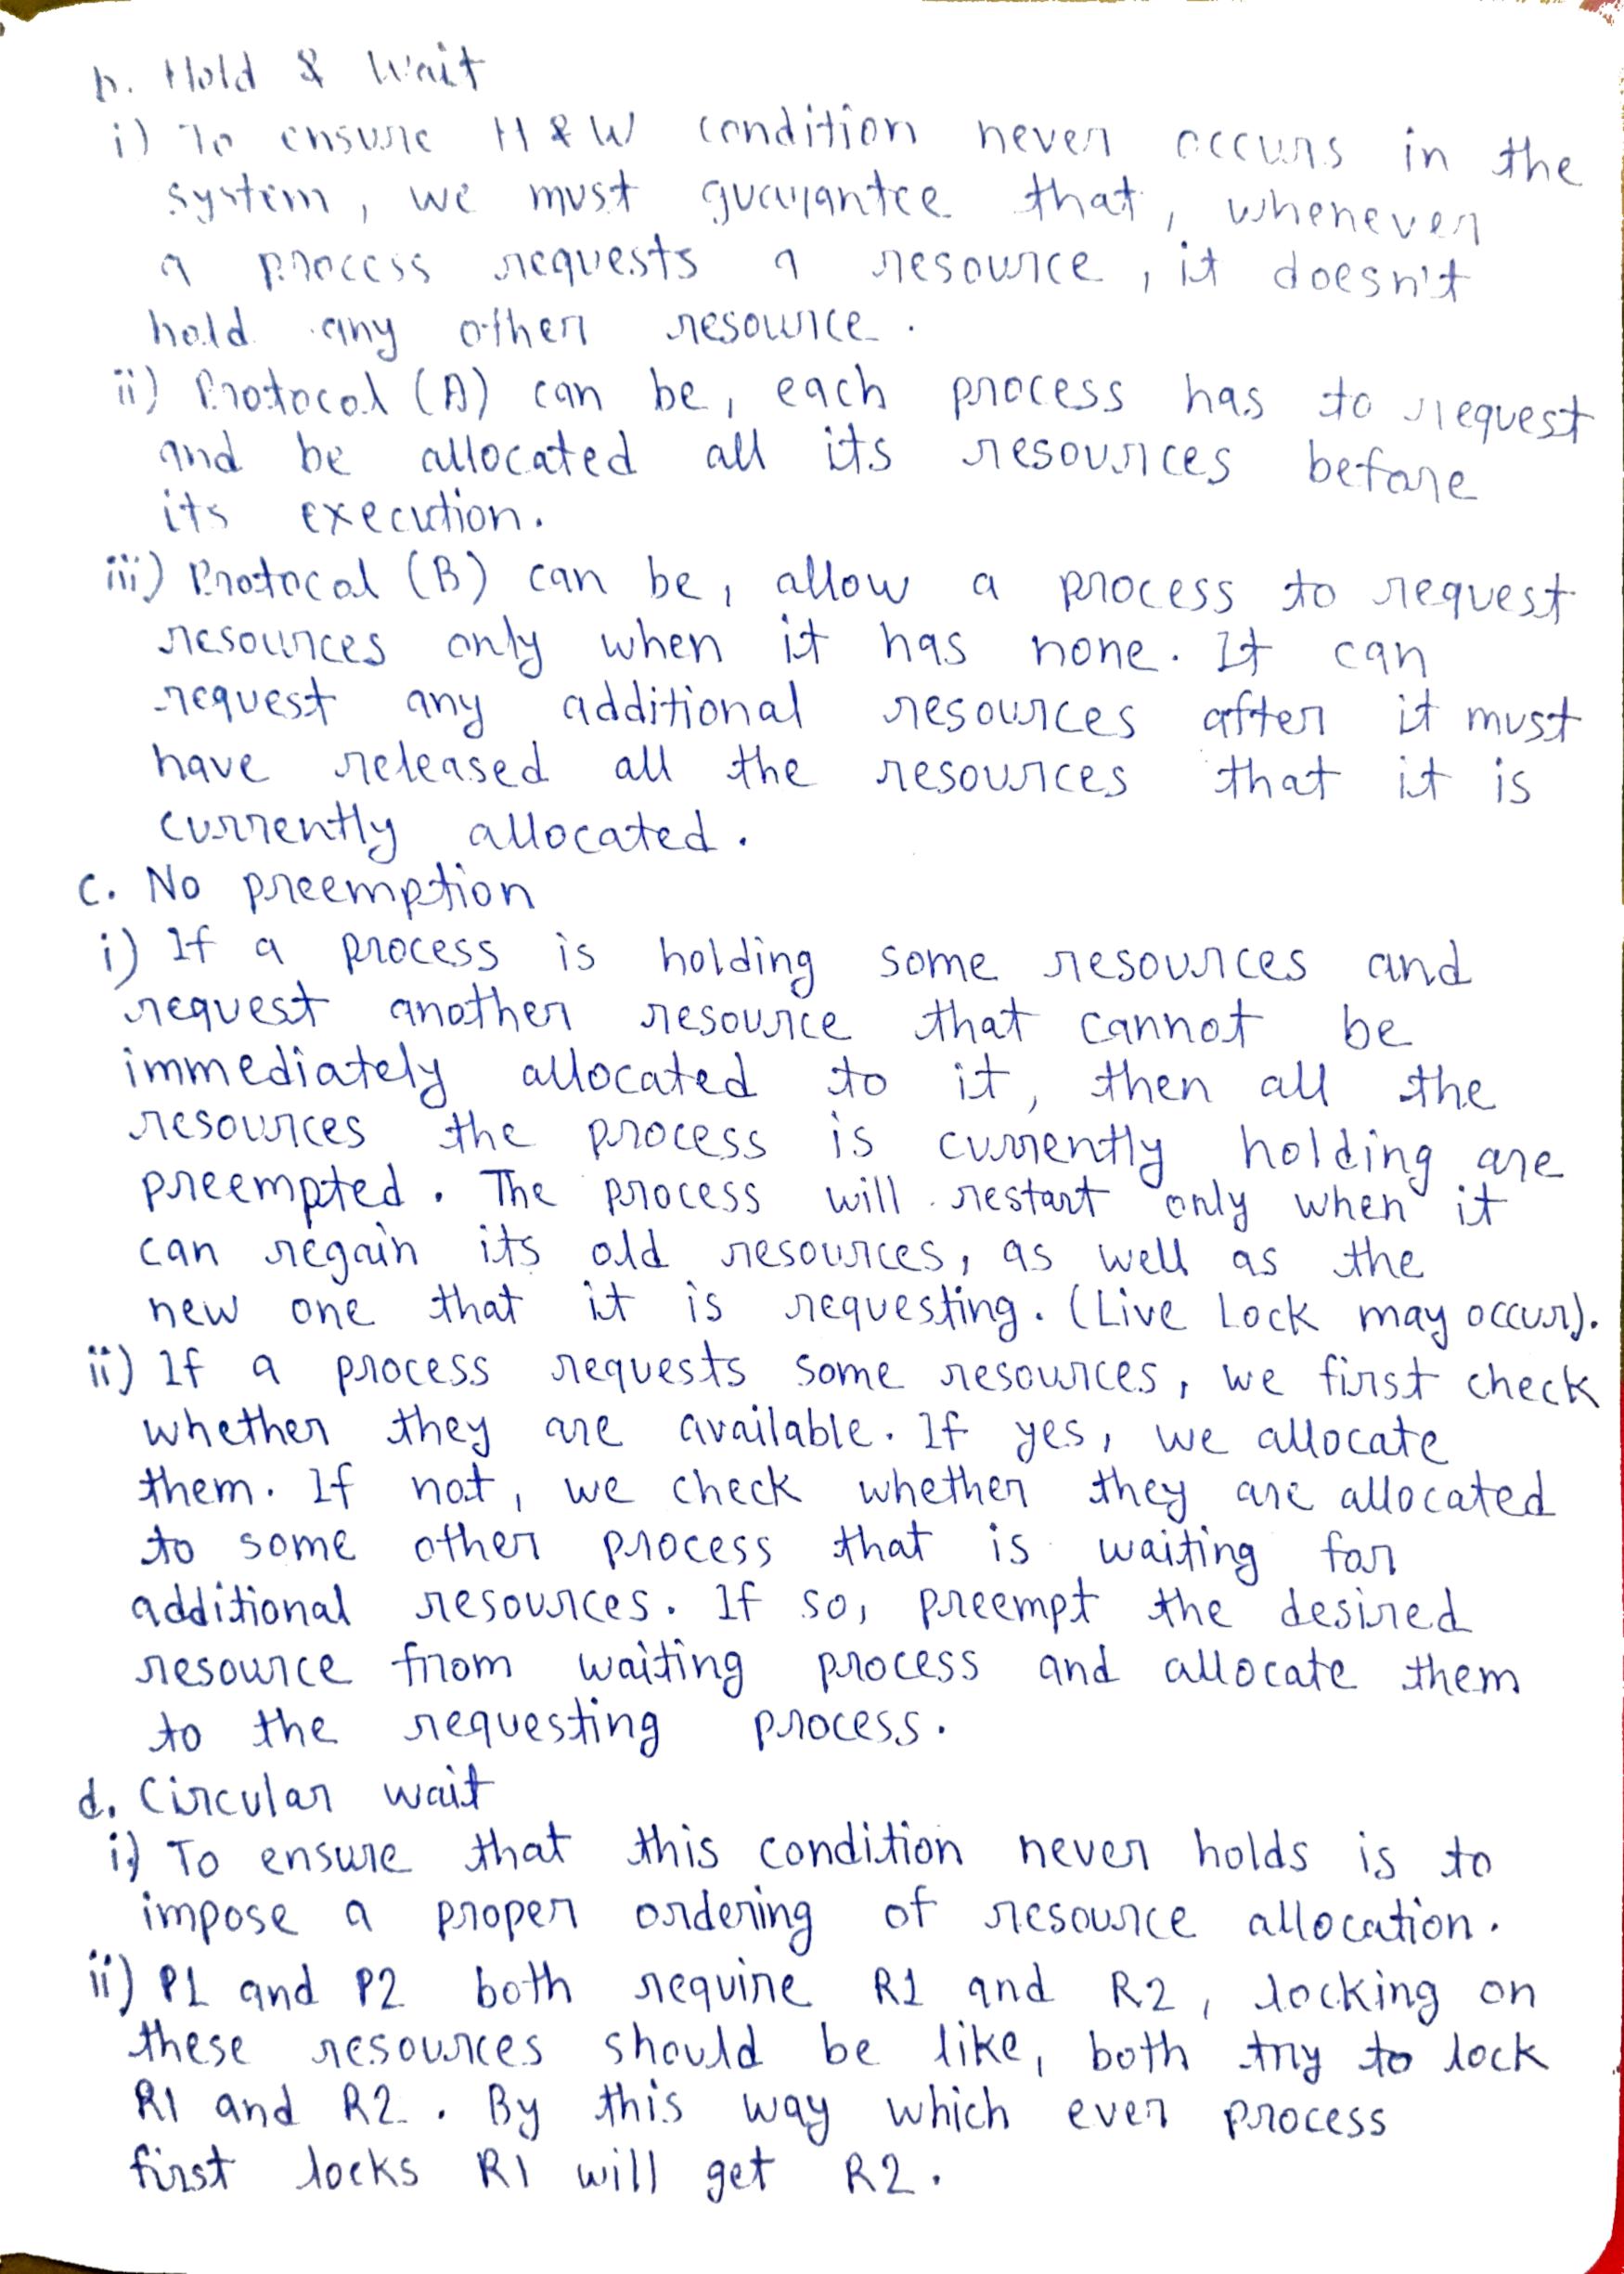 b. Hold & Wait
i) To ensure H & W condition never occurs in the
system, we must guarantee that, whenever
a process requests a resource, it doesn't
hold any other resource.
ii) Protocol (A) can be, each process has to request
and be allocated all its resources before
its execution.
iii) Protocol (B) can be, allow a process to request
resources only when it has none. It can
request any additional resources after it must
have released all the resources that it is
currently allocated.
c. No preemption
i) If a process is holding some resources and
request another resource that cannot be
immediately allocated to it, then all the
resources the process is currently holding are
preempted. The process will restart only when it
can regain its old resources, as well as the
new one that it is requesting. (Live Lock may occur).
ii) If a process requests some resources, we first check
whether they are available. If yes, we allocate
them. If not, we check whether they are allocated
to some other process that is waiting for
additional resources. If so, preempt the desired
resource from waiting process and allocate them
to the requesting process.
d. Circular wait
i) To ensure that this condition never holds is to
impose a proper ordering of resource allocation.
ii) P1 and P2 both require R1 and R2, locking on
these resources should be like, both try to lock
R1 and R2. By this way which ever process
first locks R1 will get R2.